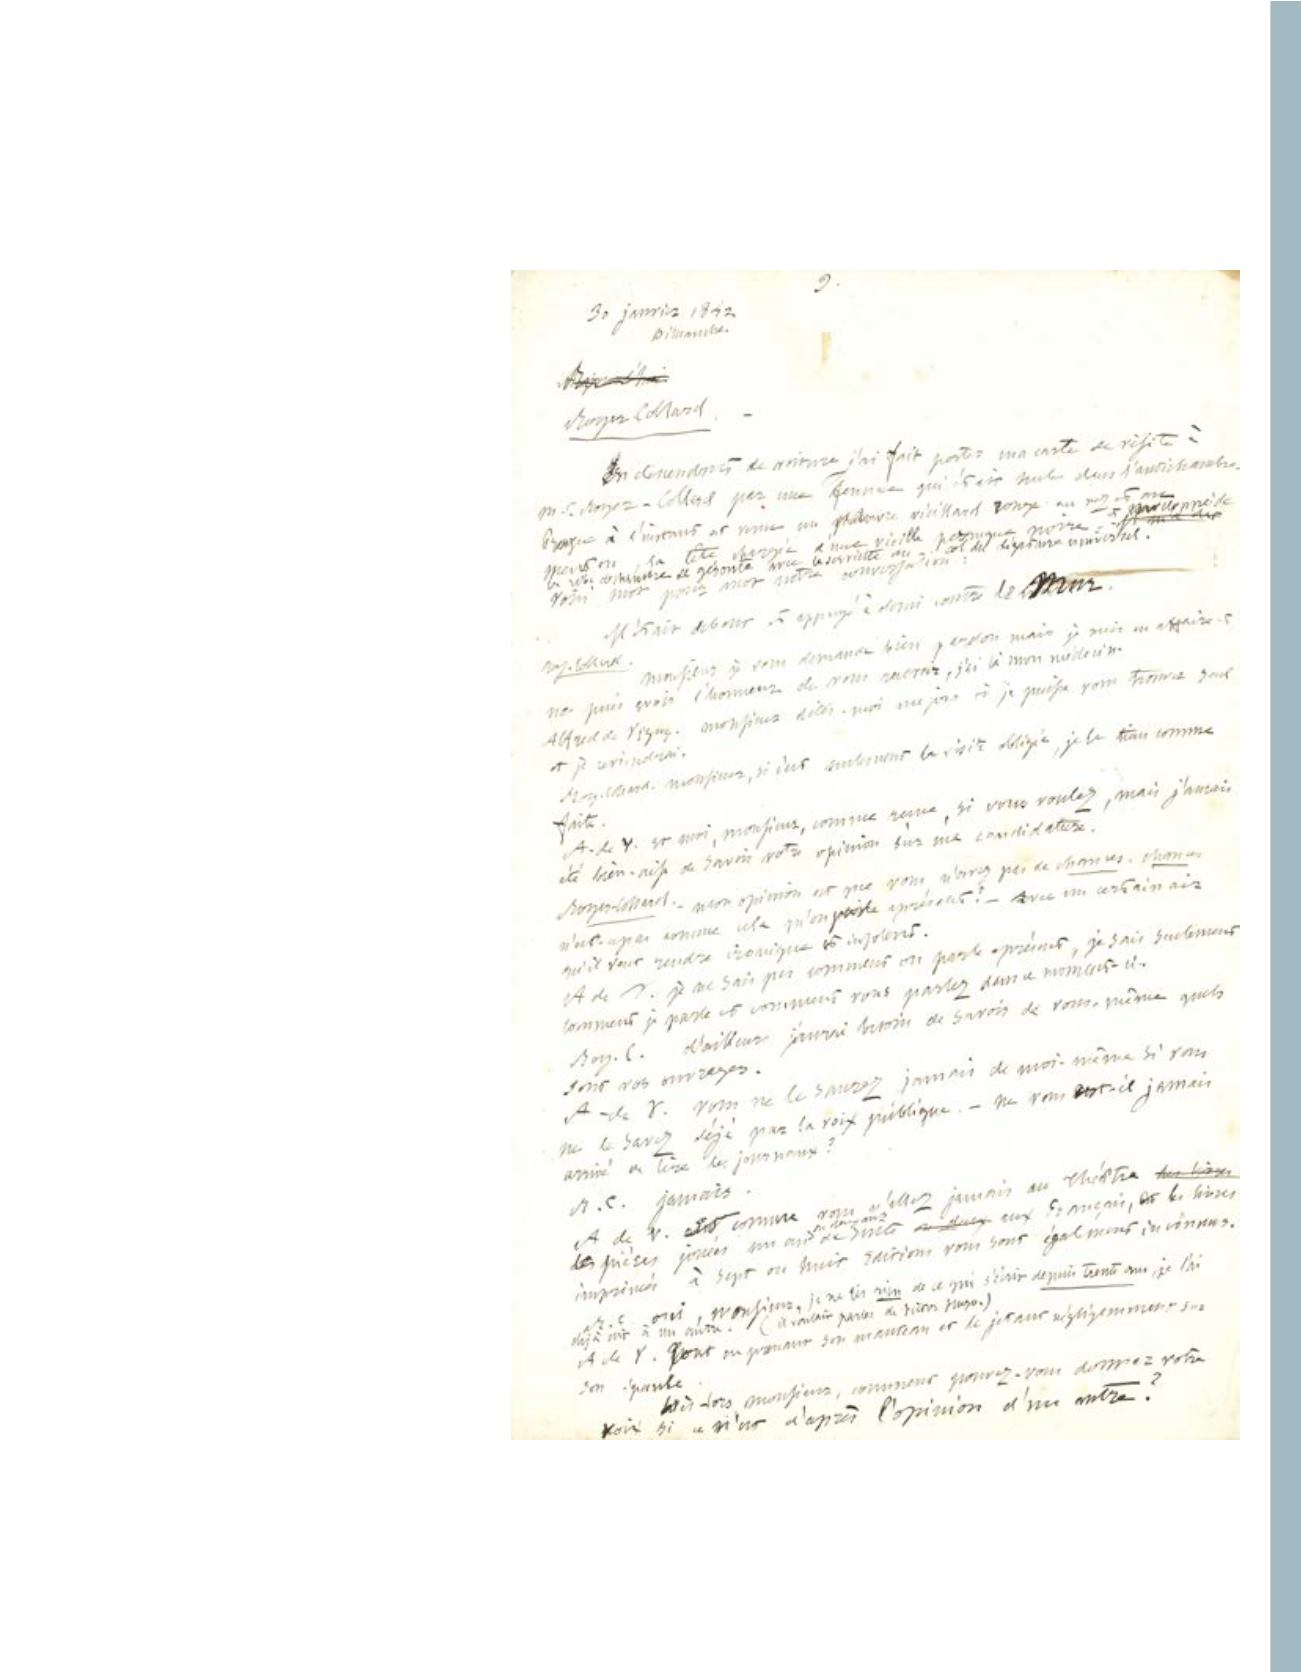 2.
30 janvier 1842
Dimanche.
Aujourd'hui
Royer-Collard. -
En descendant de voiture j'ai fait porter ma carte de visite à
M. Royer-Collard par une femme qui était seule dans l'antichambre.
Presque à l'instant est venu un pauvre vieillard rouge au nez et au
menton la tête chargée d'une vieille perruque noire et enveloppé de
la robe de chambre de Géronte avec la serviette au col du légataire universel.
Voici mot pour mot notre conversation :
Il était debout et appuyé à demi contre le mur.
Roy. Collard. Monsieur je vous demande bien pardon mais je suis en affaire et
ne puis avoir l'honneur de vous recevoir, j'ai là mon médecin.
Alfred de Vigny. Monsieur dites-moi un jour où je puisse vous trouver seul
et je reviendrai.
Roy. Collard. Monsieur, si c'est seulement la visite obligée, je la tiens comme
faite.
A. de V. Et moi, monsieur, comme reçue, si vous voulez, mais j'aurais
été bien-aise de savoir votre opinion sur ma candidature.
Royer-Collard. - Mon opinion est que vous n'avez pas de chances. chances
n'est-ce pas comme cela qu'on parle à présent ? - Avec un certain air
qu'il veut rendre ironique et insolent.
A de V. je ne sais pas comment on parle à présent, je sais seulement
comment je parle et comment vous parlez dans ce moment-ci.
Roy. C. D'ailleurs j'aurai besoin de savoir de vous-même quels
sont vos ouvrages.
A - de V. Vous ne le saurez jamais de moi-même si vous
ne le savez déjà par la voix publique. - Ne vous est-il jamais
arrivé de lire les journaux ?
R. C. jamais.
A de V. Et comme vous n'allez jamais au théâtre
les pièces jouées un an de suite aux Français, et les livres
imprimés à sept ou huit éditions vous sont également inconnus.
R. C. oui monsieur, je ne lis rien de ce qui s'écrit depuis trente ans, je l'ai
déjà dit à un autre. (il voulait parler de Victor Hugo.)
A de V. Tout en prenant son manteau et le jetant négligemment sur
son épaule.
Dès-lors monsieur, comment pouvez-vous donner votre
voix si ce n'est d'après l'opinion d'un autre ?